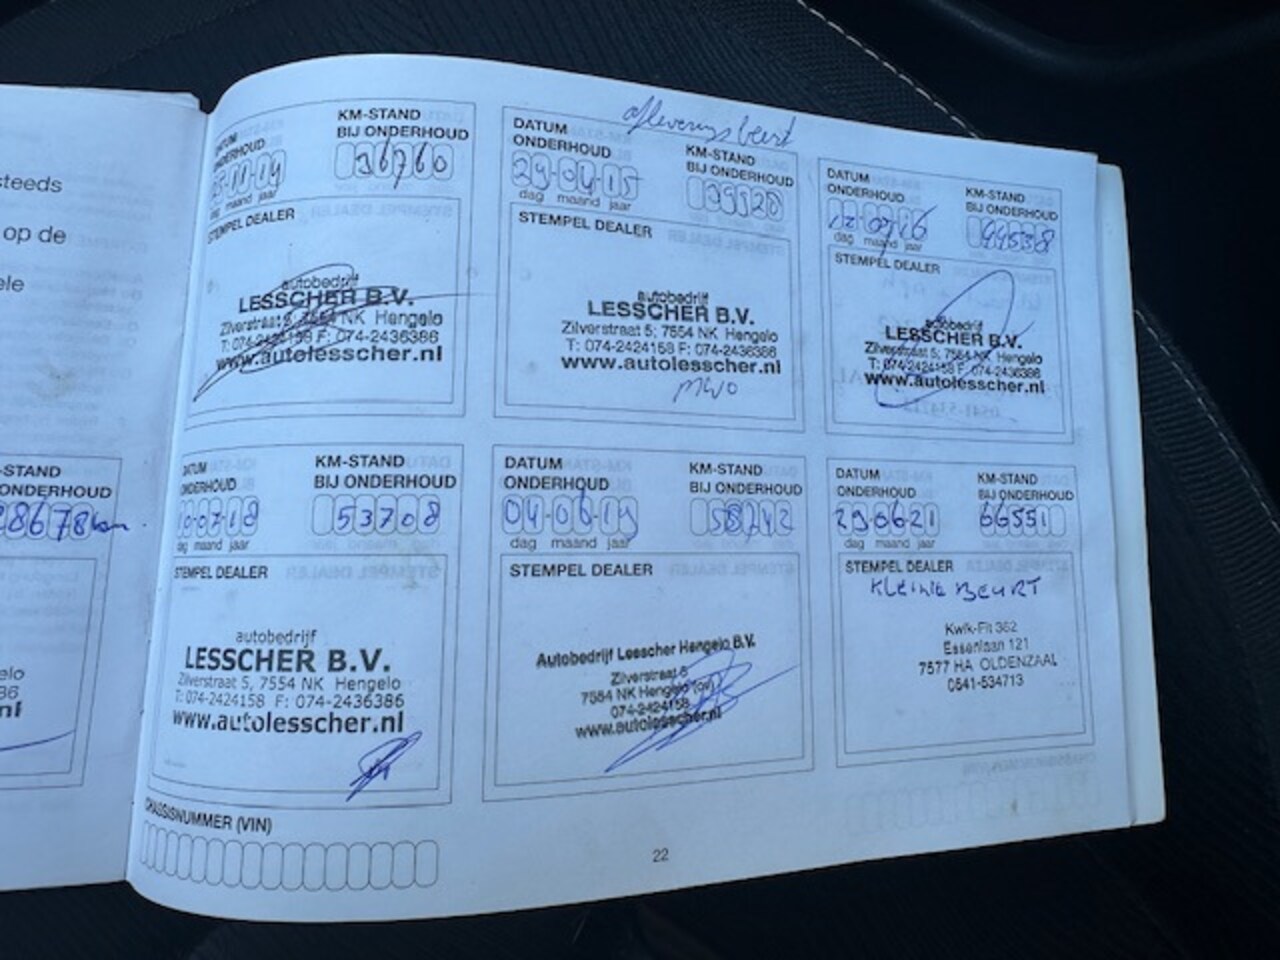 steeds
op de
ele
-STAND
ONDERHOUD
28678km.
elo
nl
DATUM
ONDERHOUD
KM-STAND
BIJ ONDERHOUD
36760
dag maand jaar
STEMPEL DEALER
autobedrijf
LESSCHER B.V.
Zilverstraat 5, 7554 NK Hengelo
T: 074-2424158 F: 074-2436386
www.autolesscher.nl
afleverings beurt
DATUM
ONDERHOUD
29-04-15
dag maand jaar
KM-STAND
BIJ ONDERHOUD
39520
STEMPEL DEALER
autobedrijf
LESSCHER B.V.
Zilverstraat 5; 7554 NK Hengelo
T: 074-2424158 F: 074-2436386
www.autolesscher.nl
DATUM
ONDERHOUD
dag maand jaar
KM-STAND
BIJ ONDERHOUD
44538
STEMPEL DEALER
autobedrijf
LESSCHER B.V.
Zilverstraat 5; 7554 NK Hengelo
T: 074-2424158 F: 074-2436386
www.autolesscher.nl
DATUM
ONDERHOUD
10-07-18
dag maand jaar
KM-STAND
BIJ ONDERHOUD
53708
STEMPEL DEALER
autobedrijf
LESSCHER B.V.
Zilverstraat 5, 7554 NK Hengelo
T: 074-2424158 F: 074-2436386
www.autolesscher.nl
DATUM
ONDERHOUD
04-06-19
dag maand jaar
KM-STAND
BIJ ONDERHOUD
58742
STEMPEL DEALER
Autobedrijf Lesscher Hengelo B.V.
Zilverstraat 5
7554 NK Hengelo (ov)
074-2424158
www.autolesscher.nl
DATUM
ONDERHOUD
29-06-21
dag maand jaar
KM-STAND
BIJ ONDERHOUD
66551
STEMPEL DEALER
KLEINE BEURT
Kwik-Fit 362
Essenlaan 121
7577 HA OLDENZAAL
0541-534713
CHASSISNUMMER (VIN)
22